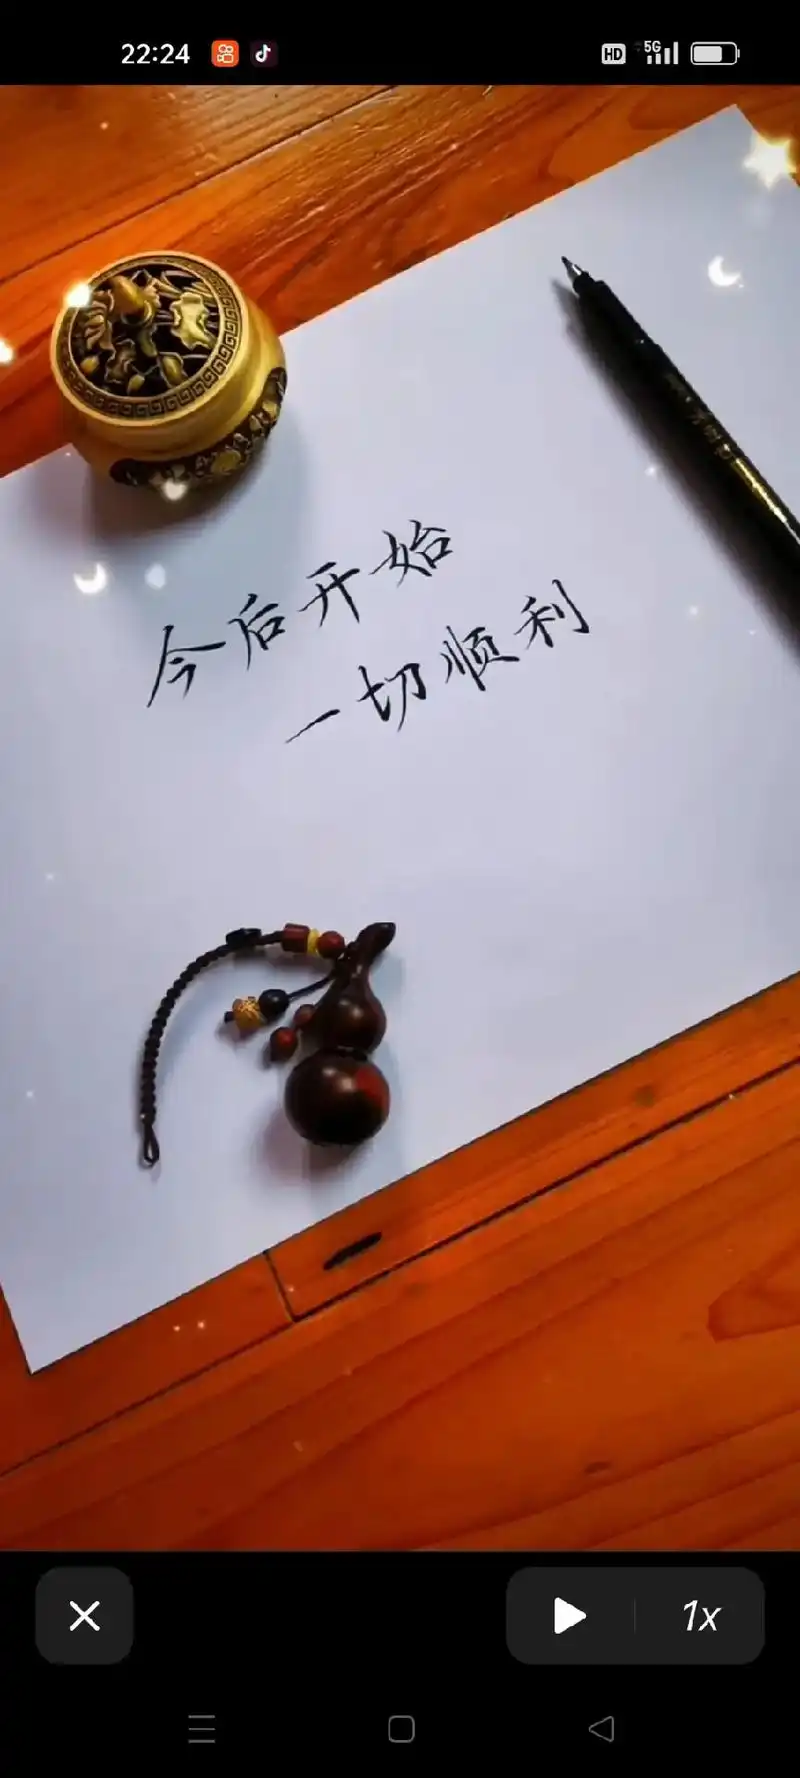 22:24
HD 5G
今后开始
一切顺利
1x